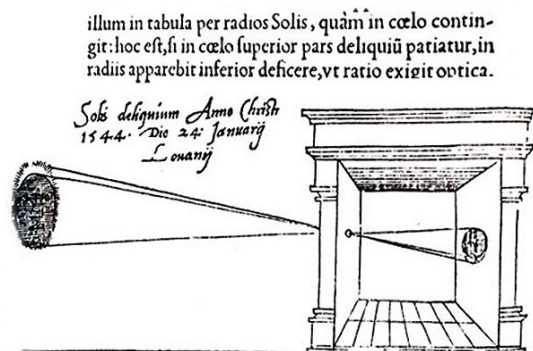 illum in tabula per radios Solis, quàm in cœlo contin-
git: hoc eſt, ſi in cœlo ſuperior pars deliquiũ patiatur, in
radiis apparebit inferior deficere, vt ratio exigit optica.
Solis deliquium Anno Christi
1544. Die 24. Januarij
Louanij